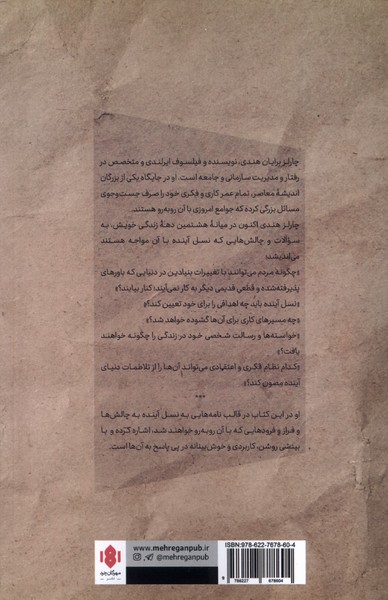 چارلز برایان هندی، نویسنده و فیلسوف ایرلندی و متخصص در
رفتار و مدیریت سازمانی و جامعه است. او در جایگاه یکی از بزرگان
اندیشهٔ معاصر، تمام عمر کاری و فکری خود را صرف جست‌وجوی
مسائل بزرگی کرده که جوامع امروزی با آن روبه‌رو هستند.
چارلز هندی اکنون در میانهٔ هشتمین دههٔ زندگی خویش، به
سؤالات و چالش‌هایی که نسل آینده با آن مواجه هستند
می‌اندیشد:
«چگونه مردم می‌توانند با تغییرات بنیادین در دنیایی که باورهای
پذیرفته‌شده و قطعی قدیمی دیگر به کار نمی‌آیند؛ کنار بیایند؟»
«نسل آینده باید چه اهدافی را برای خود تعیین کند؟»
«چه مسیرهای کاری برای آن‌ها گشوده خواهد شد؟»
«خواسته‌ها و رسالت شخصی خود در زندگی را چگونه خواهند
یافت؟»
«کدام نظام فکری و اعتقادی می‌تواند آن‌ها را از تلاطمات دنیای
آینده مصون کند؟»
***
او در این کتاب در قالب نامه‌هایی به نسل آینده به چالش‌ها
و فراز و فرودهایی که با آن روبه‌رو خواهند شد، اشاره کرده و با
بینشی روشن، کاربردی و خوش‌بینانه در پی پاسخ به آن‌ها است.
www.mehreganpub.ir
@mehreganpub
ISBN: 978-622-7678-60-4
9 786227 678604
مهرگان خرد